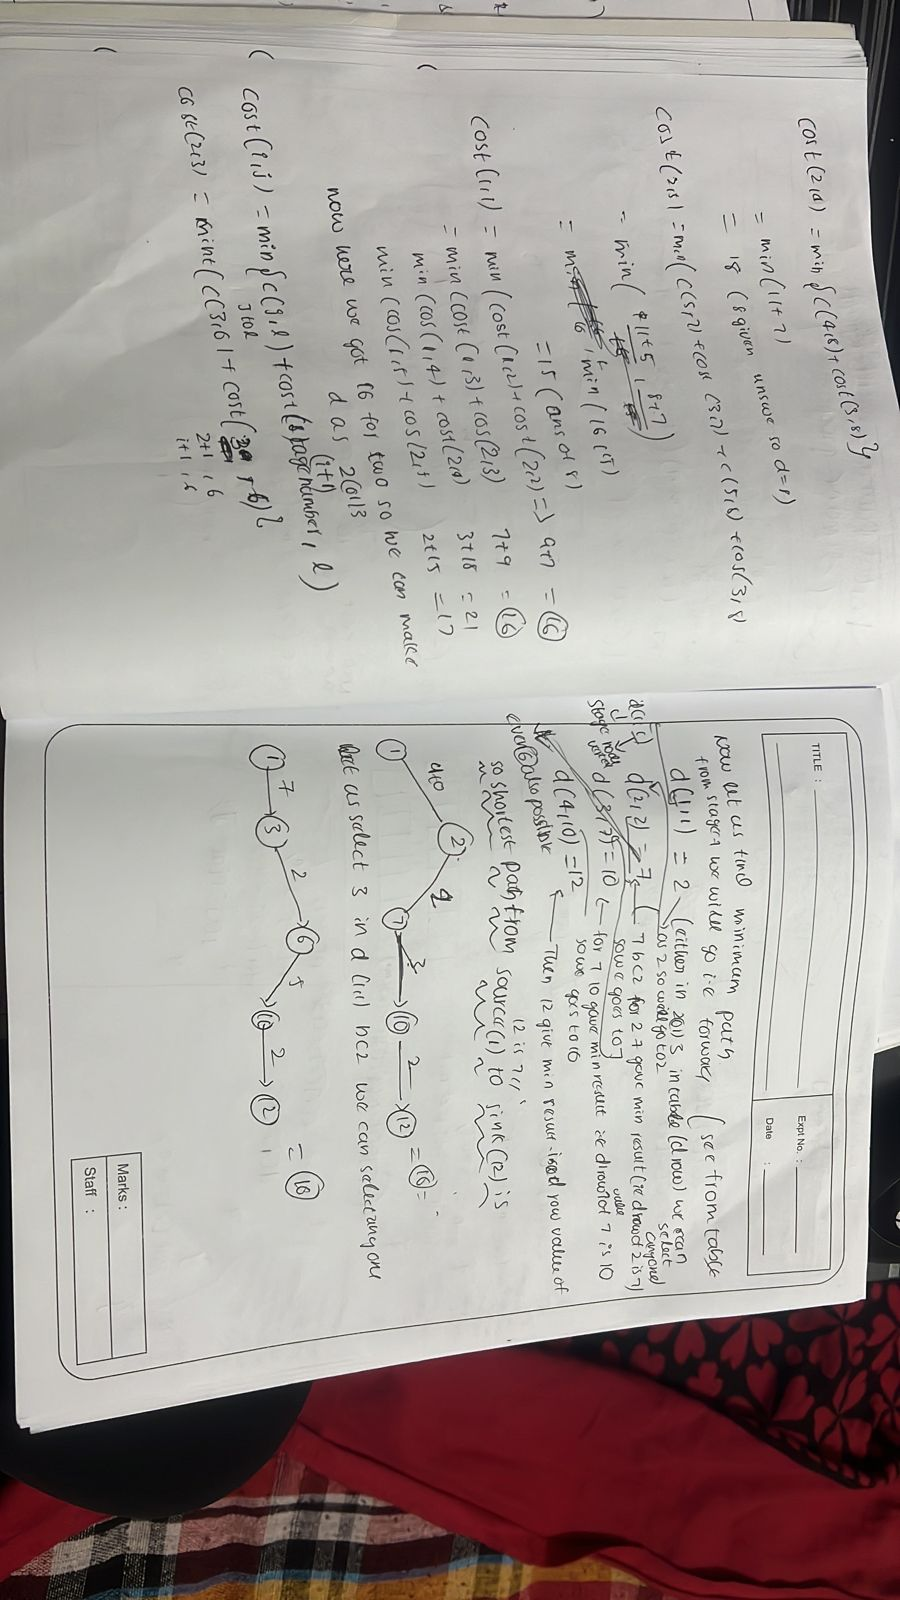 cost(2,4) = min { c(4,8) + cost(3,8) }
= min (11+7)
= 18 (8 given answe so d=8)
cost(2,5) = min( c(5,7) + cos (3,7) + c(5,8) + cos(3,8
= min( 11+5 , 8+7)
= min (16,15)
= 15 (ans of 8)
cost (1,1) = min (cost(1,2) + cost (2,2) => 9+7 = 16
= min (cost (1,3) + cos(2,3) 7+9 = 16
min (cos(1,4) + cost(2,4) 3+18 = 21
min (cos(1,5) + cos(2,5) 2+15 = 17
now here we got 16 for two so we can make
d as 2 (or) 3
cost (i,j) = min { c(j,l) + cost (stage number, l)
(i+1)
j to l
cost(2,3) = min { c(3,6) + cost( , 6) }
2+1, 6
i+1, 6
TITLE :
Expt No. :
Date :
Now let us find minimum path
from stage 1 we will go i.e forward (see from table
d(1,1) = 2 (either in 2 (or) 3 in table (d row) we can
select
anyone)
as 2 so will go to 2
d(2,2) = 7 ( 7 bcz for 2 7 gave min result (ie d row of 2 is 7)
value
so we goes to 7
d(3,7) = 10 for 7 10 gave min result ie d row of 7 is 10
so we goes to 10
d(4,10) = 12 Then 12 give min result d row value of
12 is
also possible
so shortest path from source(1) to sink (12) is
1 2 7 3 10 2 12 = 16
let us select 3 in d (1,1) bcz we can select any one
1 7 3 2 6 5 10 2 12 = 16
Marks :
Staff :